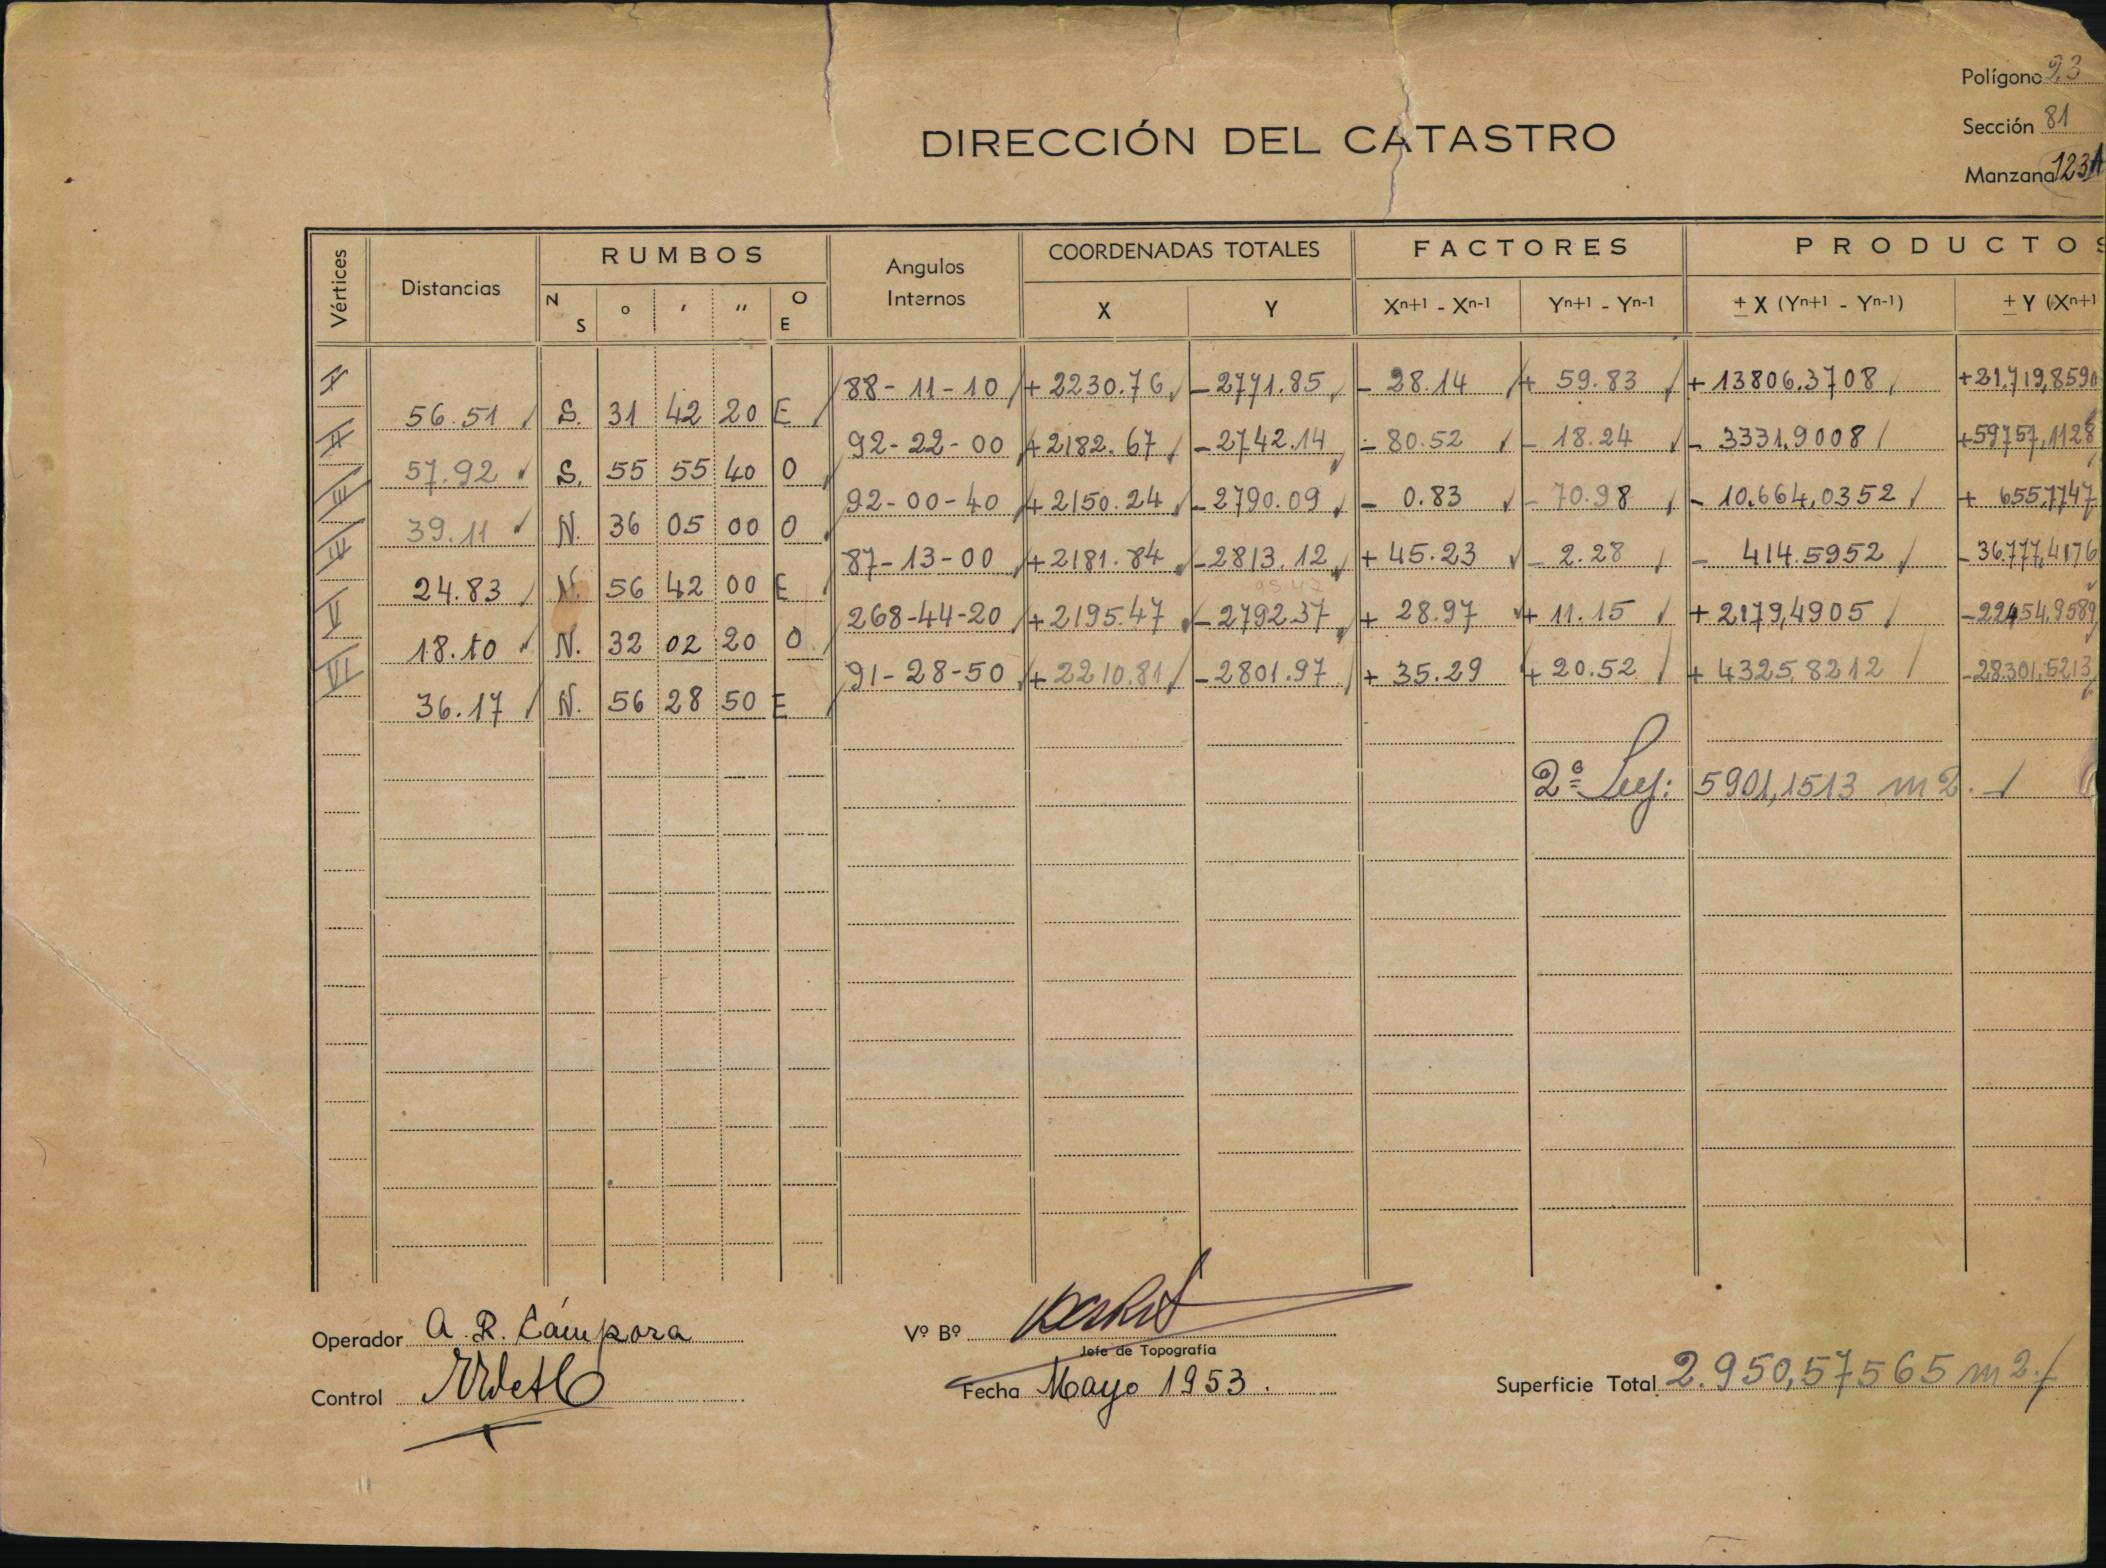 Polígono 23
Sección 81
Manzana 123A
DIRECCIÓN DEL CATASTRO
Vértices Distancias RUMBOS Angulos Internos COORDENADAS TOTALES FACTORES PRODUCTOS
N S ° ' " O E X Y Xn+1 - Xn-1 Yn+1 - Yn-1 ± X (Yn+1 - Yn-1) ± Y (Xn+1
I 88-11-10 +2230.76 -2771.85 - 28.14 + 59.83 + 13806.3708 +21.719,8590
56.51 S. 31 42 20 E
II 92-22-00 +2182.67 -2742.14 - 80.52 - 18.24 - 3331.9008 +59757,1128
57.92 S. 55 55 40 O
III 92-00-40 +2150.24 -2790.09 - 0.83 - 70.98 - 10.664,0352 + 655,7747
39.11 N. 36 05 00 O
IV 87-13-00 +2181.84 -2813.12 + 45.23 - 2.28 - 414.5952 -36.777,4176
24.83 N. 56 42 00 E
V 268-44-20 +2195.47 -2792.37 + 28.97 + 11.15 + 2179,4905 -22954,9589
18.10 N. 32 02 20 O
VI 91-28-50 +2210.81 -2801.97 + 35.29 + 20.52 + 4325,8212 -28.301,5213
36.17 N. 56 28 50 E
5901,1513 m2.
Operador A. R. Cámpora
Vº Bº
Jefe de Topografía
Control
Fecha Mayo 1953.
Superficie Total 2.950,57565 m2.